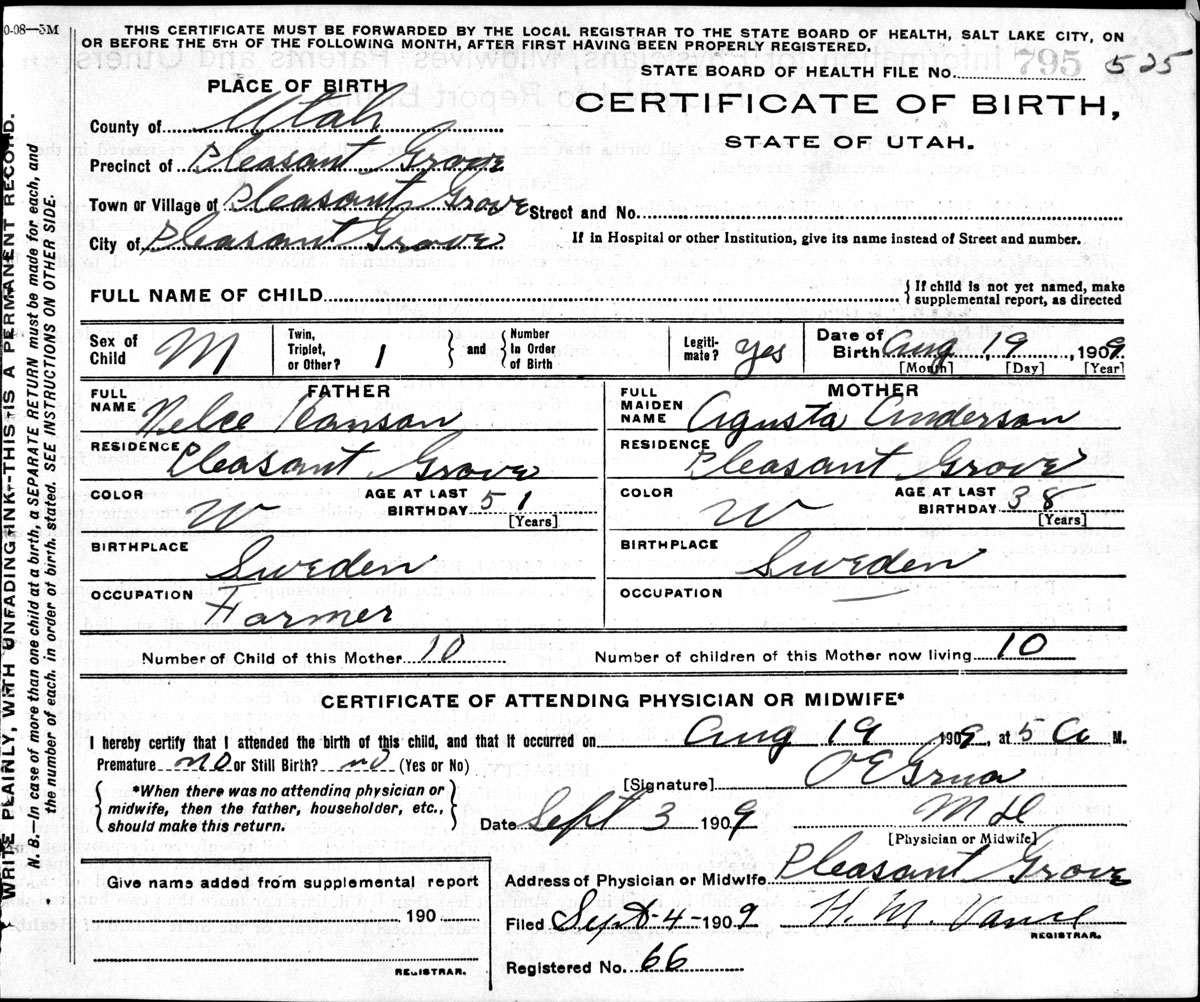 0-08—5M
THIS CERTIFICATE MUST BE FORWARDED BY THE LOCAL REGISTRAR TO THE STATE BOARD OF HEALTH, SALT LAKE CITY, ON
OR BEFORE THE 5TH OF THE FOLLOWING MONTH, AFTER FIRST HAVING BEEN PROPERLY REGISTERED.
STATE BOARD OF HEALTH FILE No. 795 525
PLACE OF BIRTH
CERTIFICATE OF BIRTH,
STATE OF UTAH.
County of Utah
Precinct of Pleasant Grove
Town or Village of Pleasant Grove Street and No.
City of Pleasant Grove If in Hospital or other Institution, give its name instead of Street and number.
FULL NAME OF CHILD { If child is not yet named, make
supplemental report, as directed
Sex of Child M Twin, Triplet, or Other? 1 and Number In Order of Birth Legiti-mate? yes Date of Birth Aug 19, 1909.
[Month] [Day] [Year]
FATHER
FULL NAME Nelce
RESIDENCE Pleasant Grove
COLOR W AGE AT LAST BIRTHDAY 51
[Years]
BIRTHPLACE Sweden
OCCUPATION Farmer
MOTHER
FULL MAIDEN NAME Agusta Anderson
RESIDENCE Pleasant Grove
COLOR W AGE AT LAST BIRTHDAY 38
[Years]
BIRTHPLACE Sweden
OCCUPATION —
Number of Child of this Mother 10 Number of children of this Mother now living 10
CERTIFICATE OF ATTENDING PHYSICIAN OR MIDWIFE*
I hereby certify that I attended the birth of this child, and that it occurred on Aug 19 1909, at 5 a M.
Premature no or Still Birth? no (Yes or No)
*When there was no attending physician or
midwife, then the father, householder, etc.,
should make this return.
[Signature] O E Grua
Date Sept 3 1909 M D
[Physician or Midwife]
Give name added from supplemental report
190
REGISTRAR.
Address of Physician or Midwife Pleasant Grove
Filed Sept-4-1909 H. M.
REGISTRAR.
Registered No. 66
WRITE PLAINLY, WITH UNFADING INK--THIS IS A PERMANENT RECORD.
N. B.—In case of more than one child at a birth, a SEPARATE RETURN must be made for each, and
the number of each, in order of birth, stated. SEE INSTRUCTIONS ON OTHER SIDE.